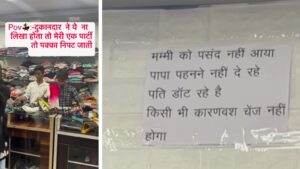 Pov💃:-दुकानदार ने ये ना
लिखा होता तो मेरी एक पार्टी
तो पक्का निपट जाती
मम्मी को पसंद नहीं आया
पापा पहनने नहीं दे रहे
पति डॉट रहे है
किसी भी कारणवश चेंज नहीं
होगा